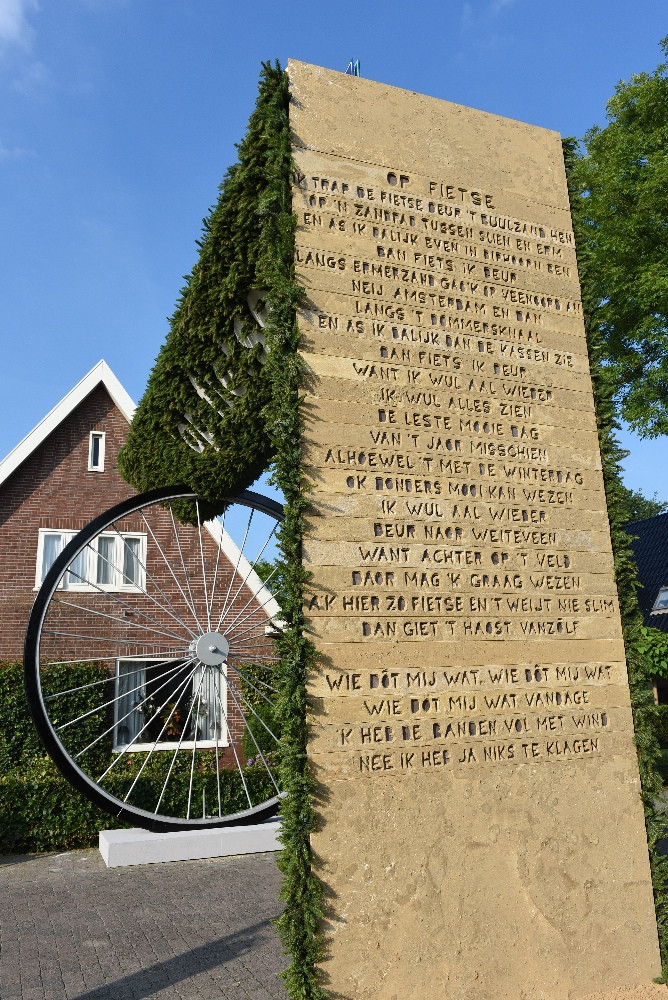 OP FIETSE
IK TRAP DE FIETSE DEUR 'T BUULZAND HEN
OP 'N ZANDPAD TUSSEN SLIEN EN ERM
EN AS IK DALIJK EVEN IN DIPHOORN BEN
DAN FIETS IK DEUR
LANGS ERMERZAND GAO'K OP VEENOORD AN
NEIJ AMSTERDAM EN DAN
LANGS 'T DOMMERSKNAAL
EN AS IK DALIJK DAN DE KASSEN ZIE
DAN FIETS IK DEUR
WANT IK WUL AAL WIEDER
IK WUL ALLES ZIEN
DE LESTE MOOIE DAG
VAN 'T JAOR MISSCHIEN
ALHOEWEL 'T MET DE WINTERDAG
OK DONDERS MOOI KAN WEZEN
IK WUL AAL WIEDER
DEUR NAOR WEITEVEEN
WANT ACHTER OP 'T VELD
DAOR MAG 'K GRAAG WEZEN
A'K HIER ZO FIETSE EN 'T WEIJT NIE SLIM
DAN GIET 'T HAOST VANZÖLF
WIE DÓT MIJ WAT, WIE DÓT MIJ WAT
WIE DÓT MIJ WAT VANDAGE
'K HEB DE BANDEN VOL MET WIND
NEE IK HEB JA NIKS TE KLAGEN